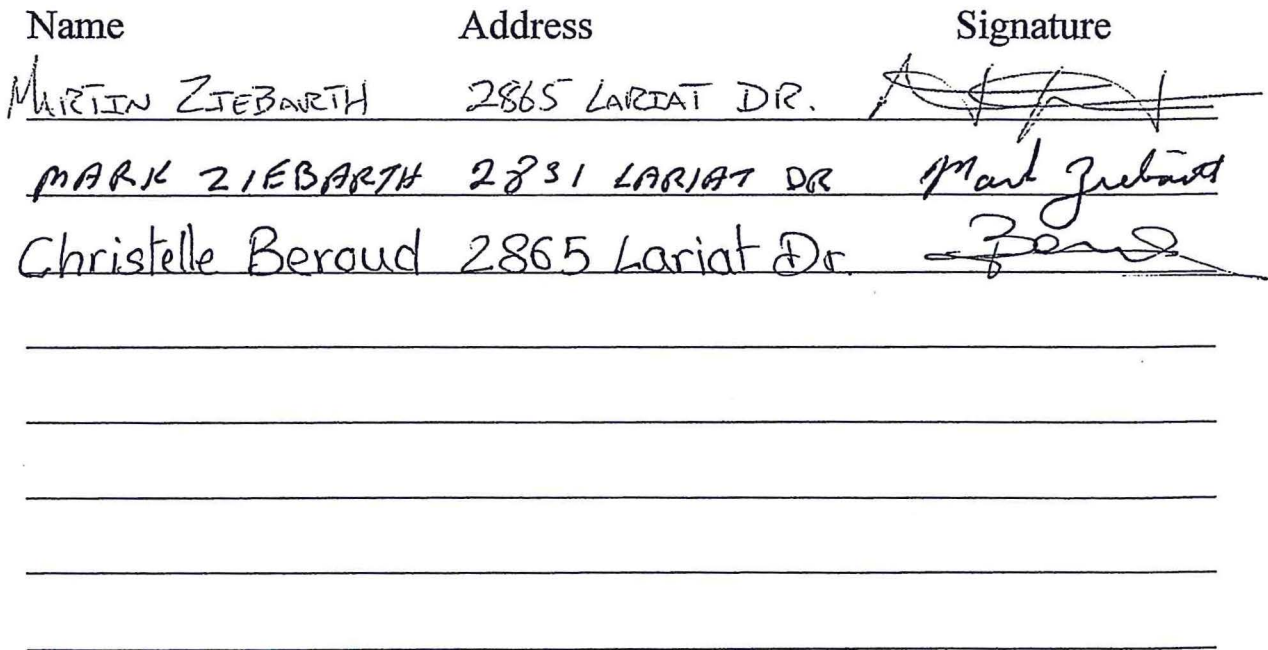 Name Address Signature
MARTIN ZIEBARTH 2865 LARIAT DR.
MARK ZIEBARTH 2831 LARIAT DR Mark Ziebarth
Christelle Beroud 2865 Lariat Dr.